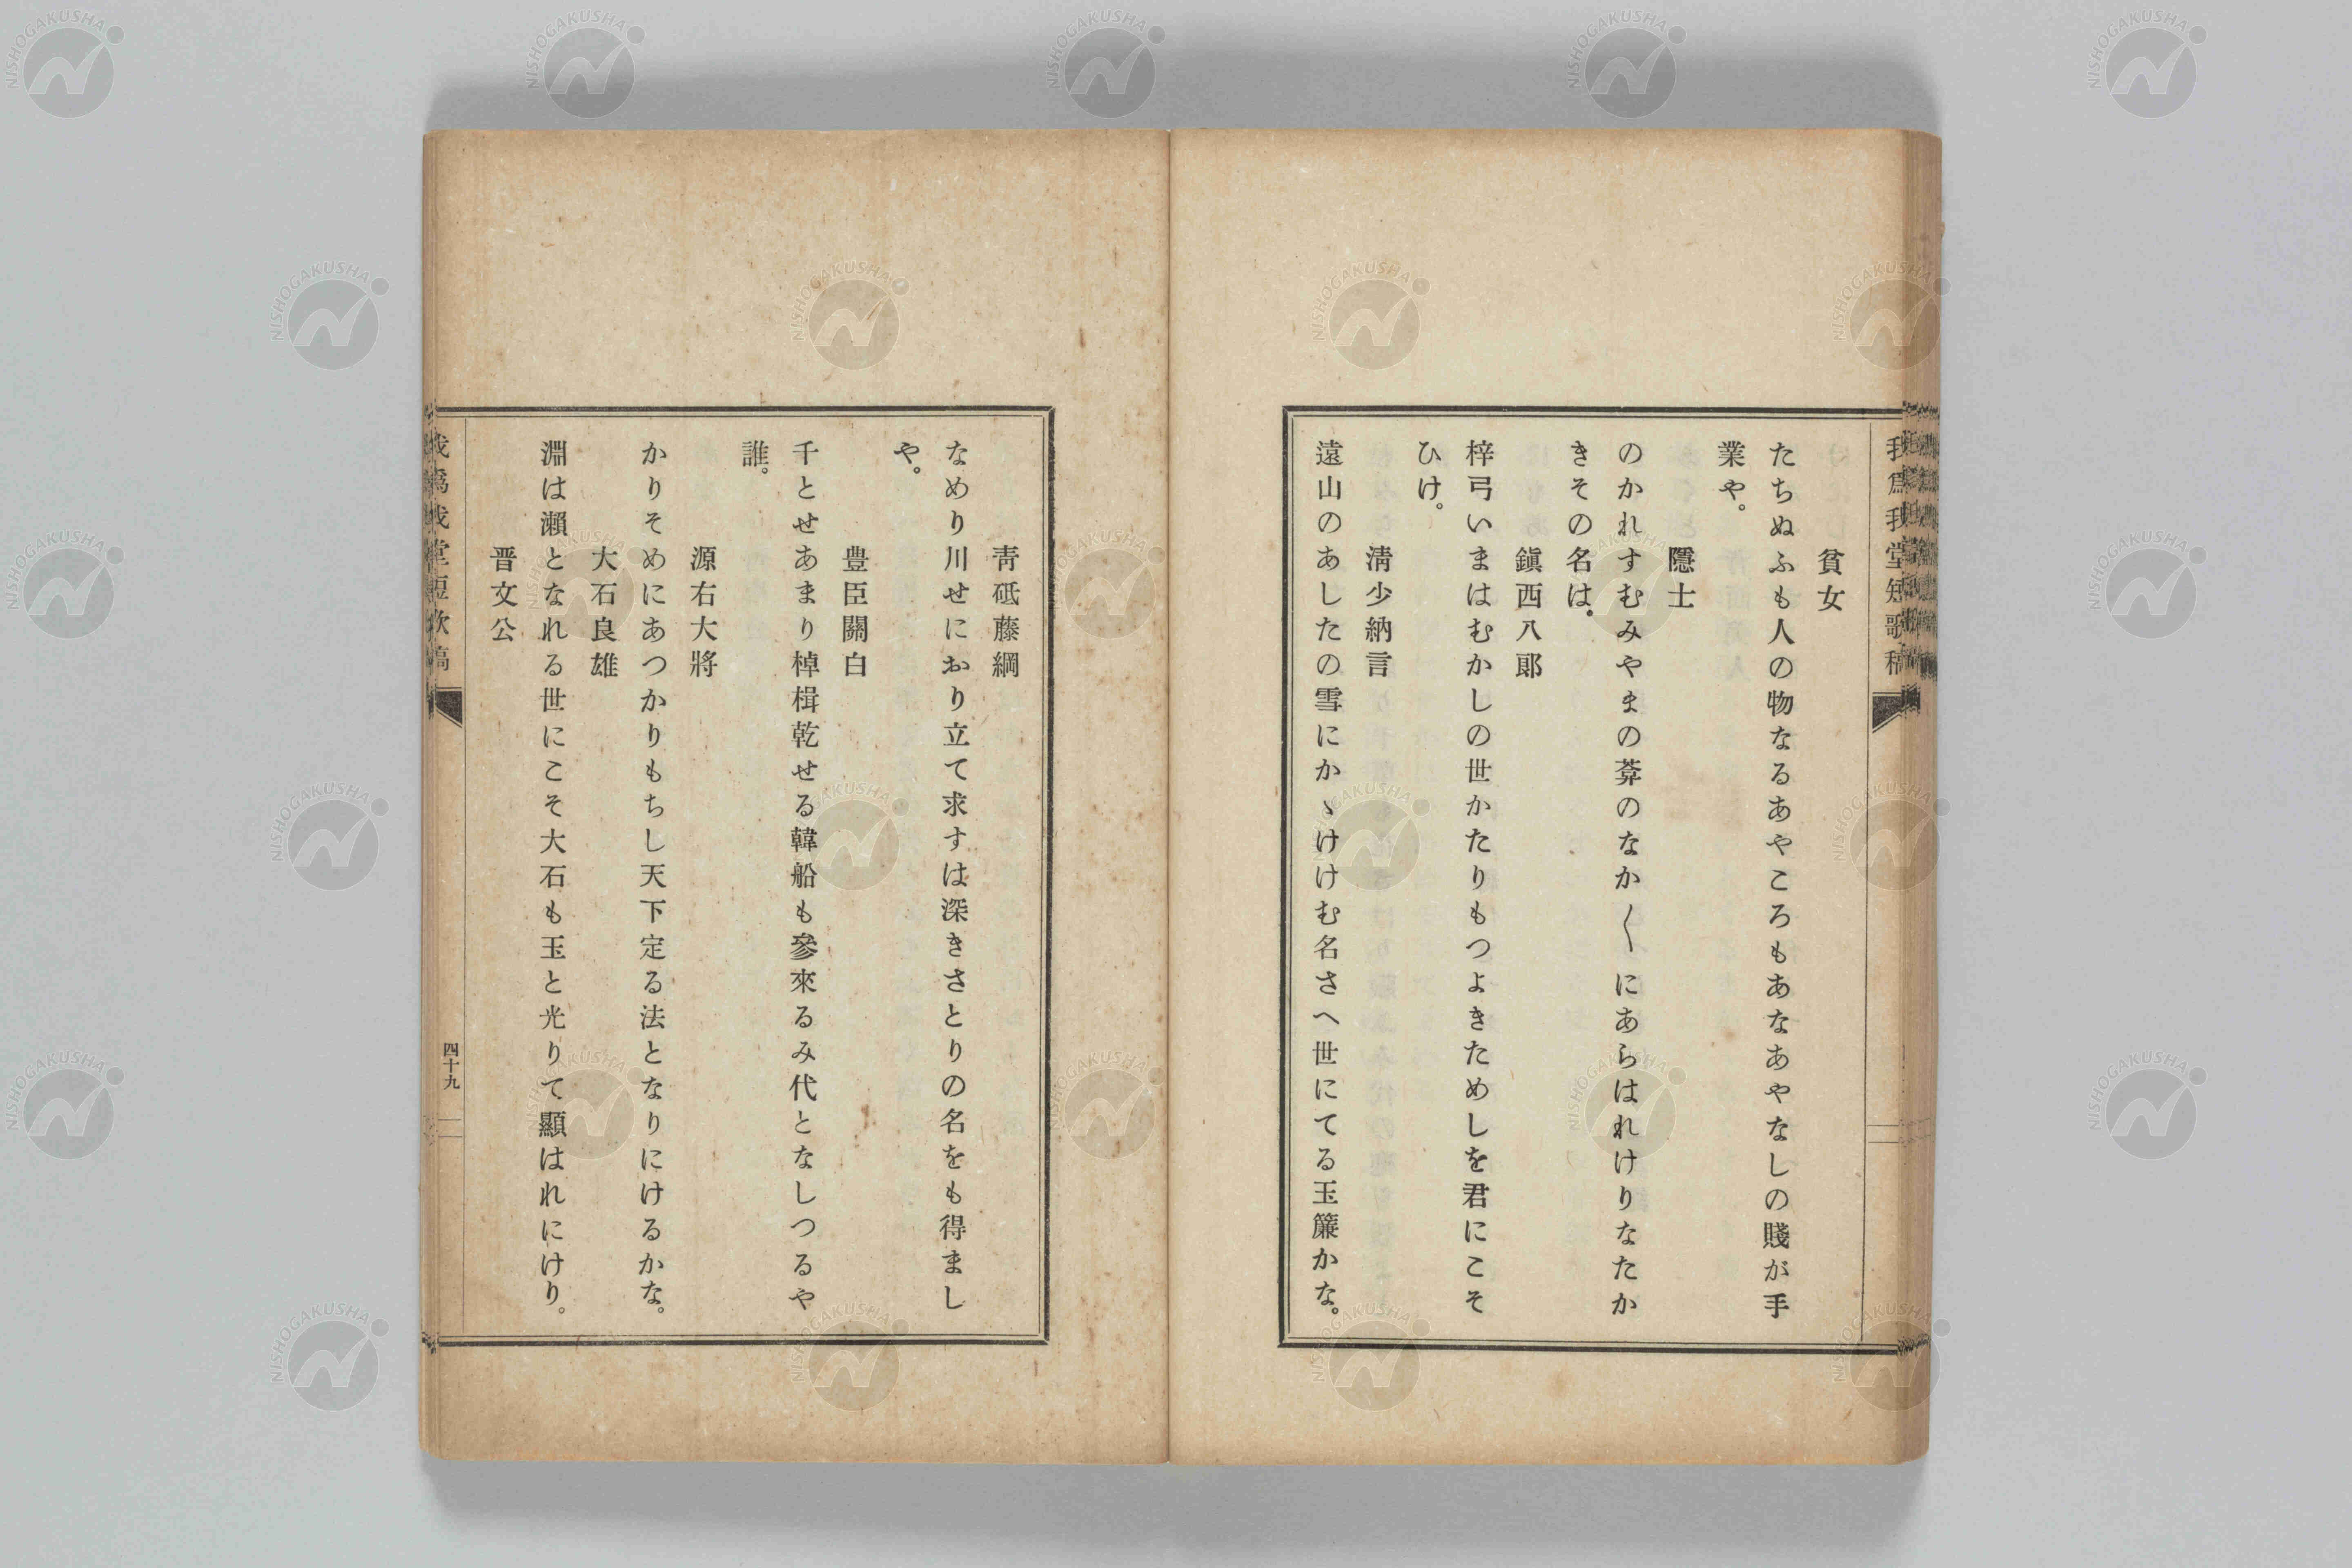 我爲我堂短歌稿
貧女
たちぬふも人の物なるあやころもあなあやなしの賤が手
業や。
隱士
のかれすむみやまの葊のなか〱にあらはれけりなたか
きその名は。
鎭西八郞
梓弓いまはむかしの世かたりもつよきためしを君にこそ
ひけ。
淸少納言
遠山のあしたの雪にかゝけけむ名さへ世にてる玉簾かな。
靑砥藤綱
なめり川せにおり立て求すは深きさとりの名をも得まし
や。
豊臣關白
千とせあまり棹楫乾せる韓船も參來るみ代となしつるや
誰。
源右大將
かりそめにあつかりもちし天下定る法となりにけるかな。
大石良雄
淵は瀨となれる世にこそ大石も玉と光りて顯はれにけり。
晋文公
我爲我堂短歌稿
四十九
NISHOGAKUSHA